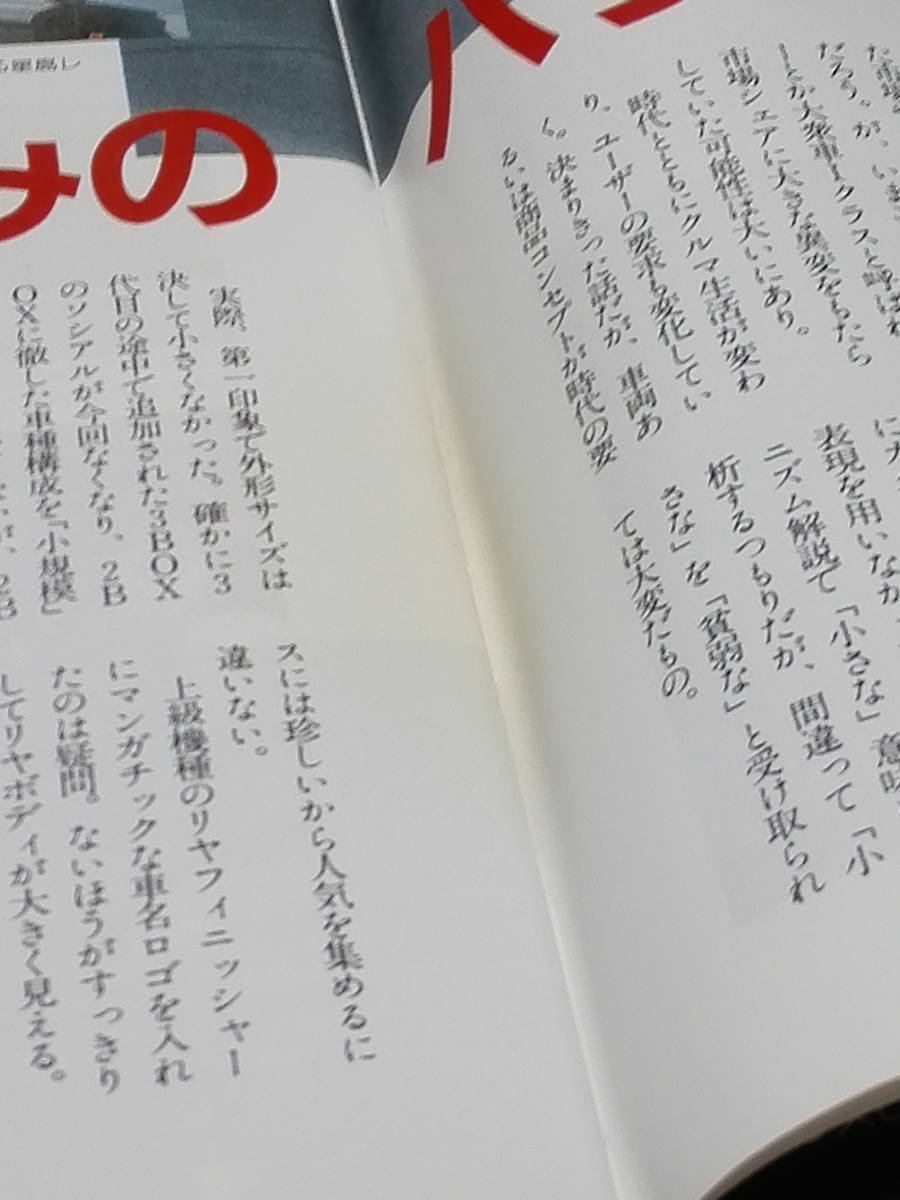 みの
だろう。が、いま
ーとか大衆車ークラスと呼ばれ
市場シェアに大きな異変をもたら
していた可能性は大いにあり。
時代とともにクルマ生活が変わ
り、ユーザーの要求も変化してい
く。決まりきった話だが、車両あ
るいは商品コンセプトが時代の要
表現を用いなが
ニズム解説で「小さな」意味
析するつもりだが、間違って「小
さな」を「貧弱な」と受け取られ
ては大変だもの。
実際、第一印象で外形サイズは
決して小さくなかった。確かに3
代目の途中で追加された3BOX
のソシアルが今回なくなり、2B
OXに徹した車種構成を「小規模」
スには珍しいから人気を集めるに
違いない。
上級機種のリヤフィニッシャー
にマンガチックな車名ロゴを入れ
たのは疑問。ないほうがすっきり
してリヤボディが大きく見える。